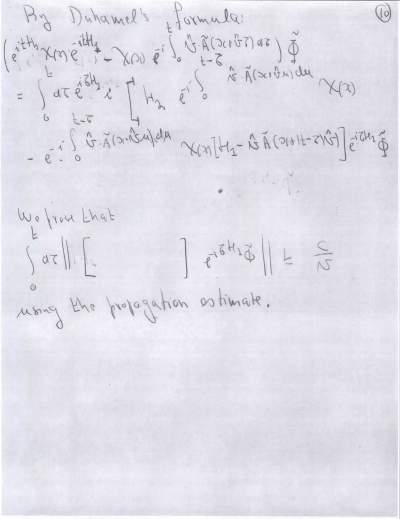 10
By Duhamel's formula:
(e^{itH_2} χ(x) e^{-itH_1} - χ(x) e^{-i∫_0^t v̂·Ã(x+v̂τ)dτ}) Φ̃
= ∫_0^t dτ e^{iτH_2} i [H_2 e^{-i∫_0^{t-τ} v̂·Ã(x+v̂u)du} χ(x)
- e^{-i∫_0^{t-τ} v̂·Ã(x+v̂u)du} χ(x)[H_1 - v̂·Ã(x+(t-τ)v̂)] e^{-iτH_1} Φ̃
We prove that
∫_0^t dτ ||[ ] e^{-iτH_1} Φ̃ || ≤ C/v
using the propagation estimate.